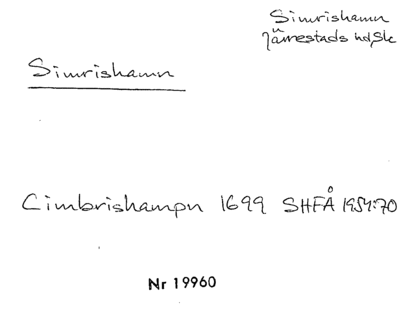 Simrishamn
Järrestads hd, Sk
Simrishamn
Cimbrishampn 1699 SHFÅ 1954:70
Nr 19960